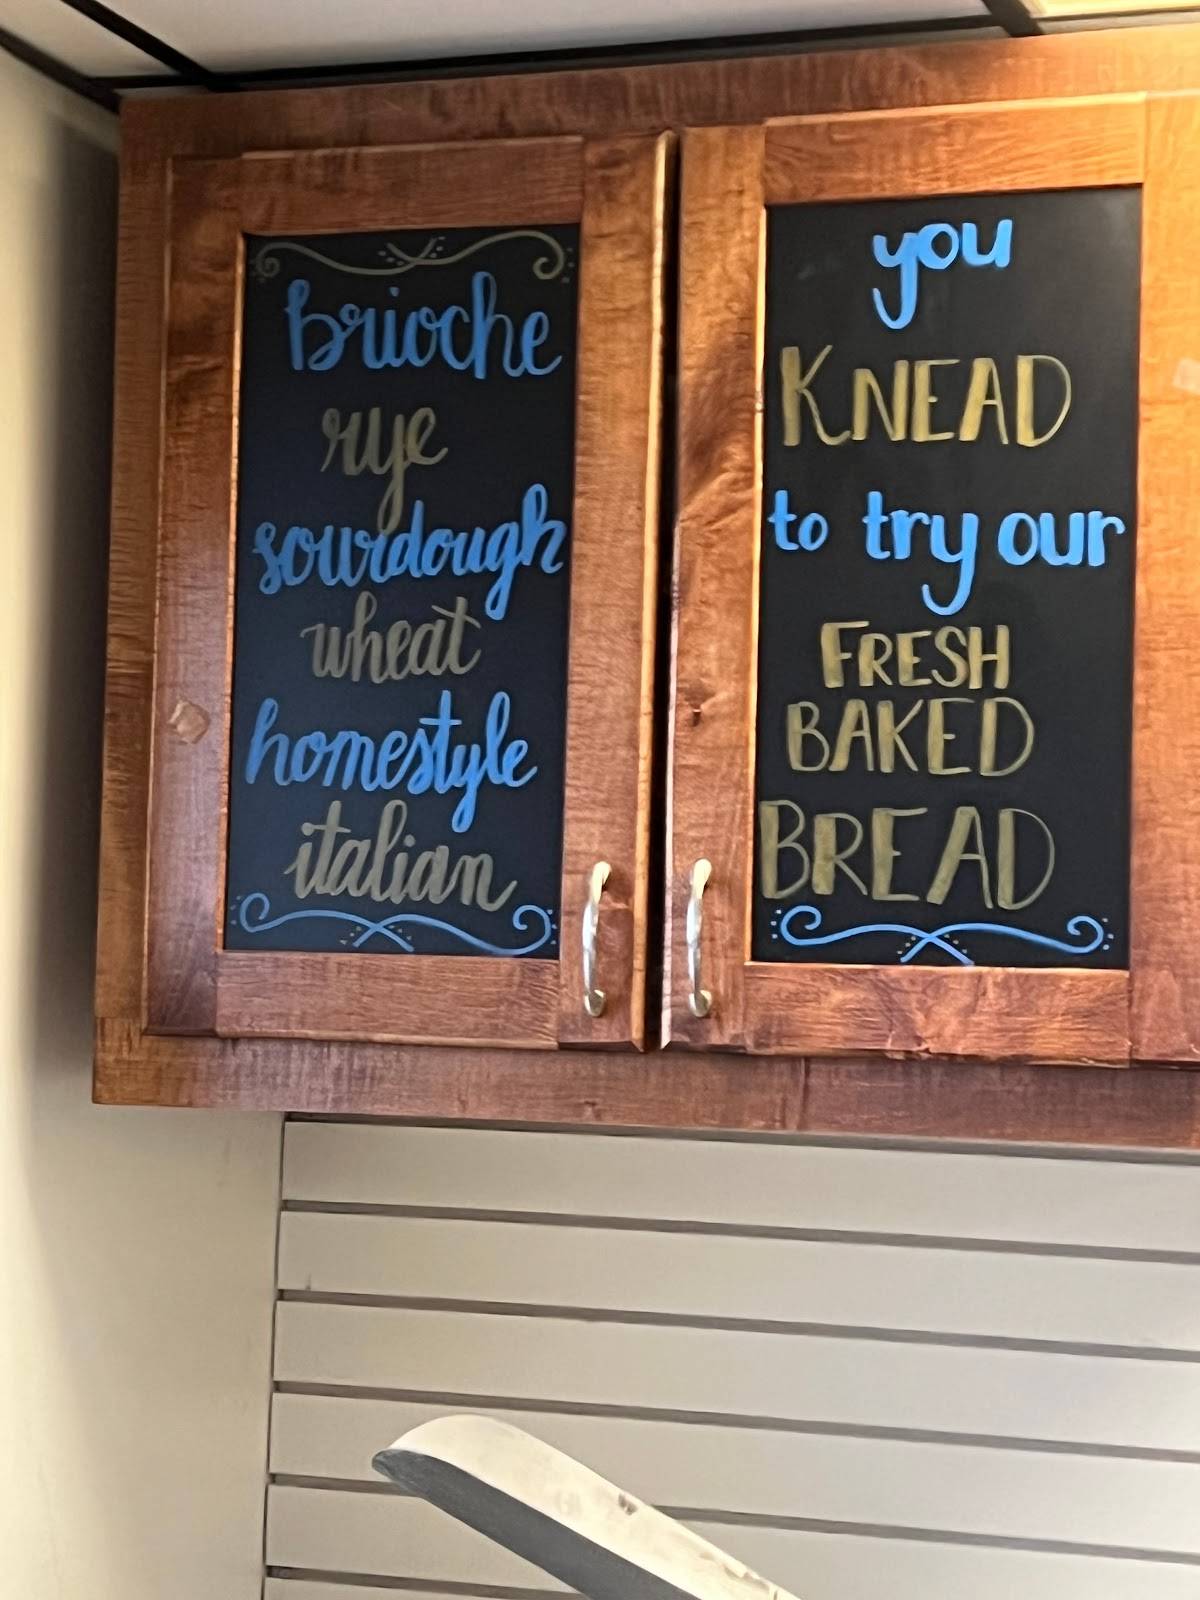 brioche
rye
sourdough
wheat
homestyle
italian
you
KNEAD
to try our
FRESH
BAKED
BREAD